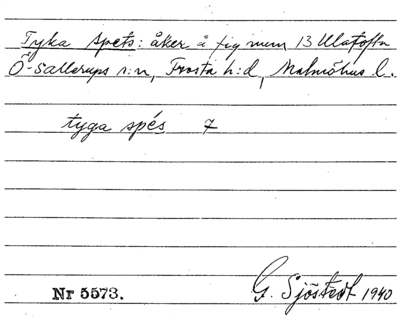 Tyka spets: åker å fig num 13 Ulatofta
Ö-Sallerups s:n, Frosta h:d, Malmöhus l.
tyga spés 7
Nr 5573.
G. Sjöstedt 1940